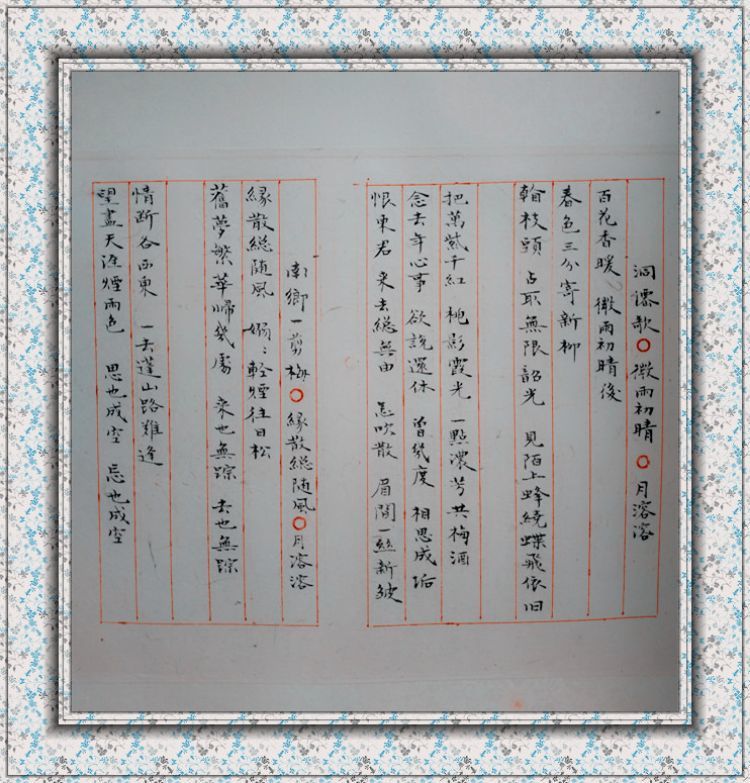 洞僊歌○微雨初晴○月溶溶
百花香暖 微雨初晴後
春色三分寄新柳
翰枝頭 占取無限韶光 見陌上蜂繞蝶飛依旧
把萬紫千紅 桃影霞光 一點濃芳共梅酒
念去年心事 欲說還休 曾幾度 相思成垢
恨東君 来去総無由 怎吹散 眉間一絲新皱
南鄉一剪梅○緣散総随風○月溶溶
緣散総随風 嫋々輕煙往日松
舊夢繁華歸幾處 来也無踪 去也無踪
情断各西東 一去蓬山路難逢
望盡天涯煙雨色 思也成空 忘也成空